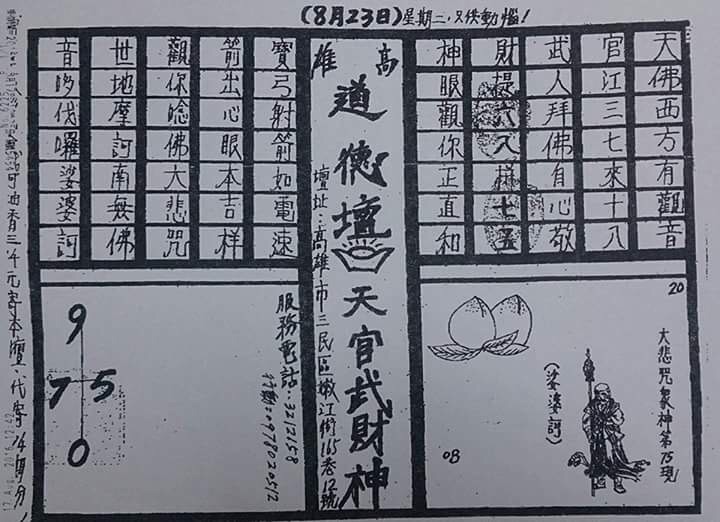 (8月23日)星期二.只供動惱!
天佛西方有觀音
官江三七來十八
武人拜佛自心敬
財提六八樣七五
神眼觀你正直和
高雄
道德壇
天官武財神
壇址:高雄市三民區嫩江街165巷12號
寶弓射箭如電速
箭出心眼本吉祥
觀你唸佛大悲咒
世地摩訶南無佛
音哆伐囉娑婆訶
20
大悲咒象神第75現
(娑婆訶)
08
服務電話:3212158
行動:0978020512
9
7 5
0
油香三千元寄本壇.代寄
17 Aug. 2016 17:42